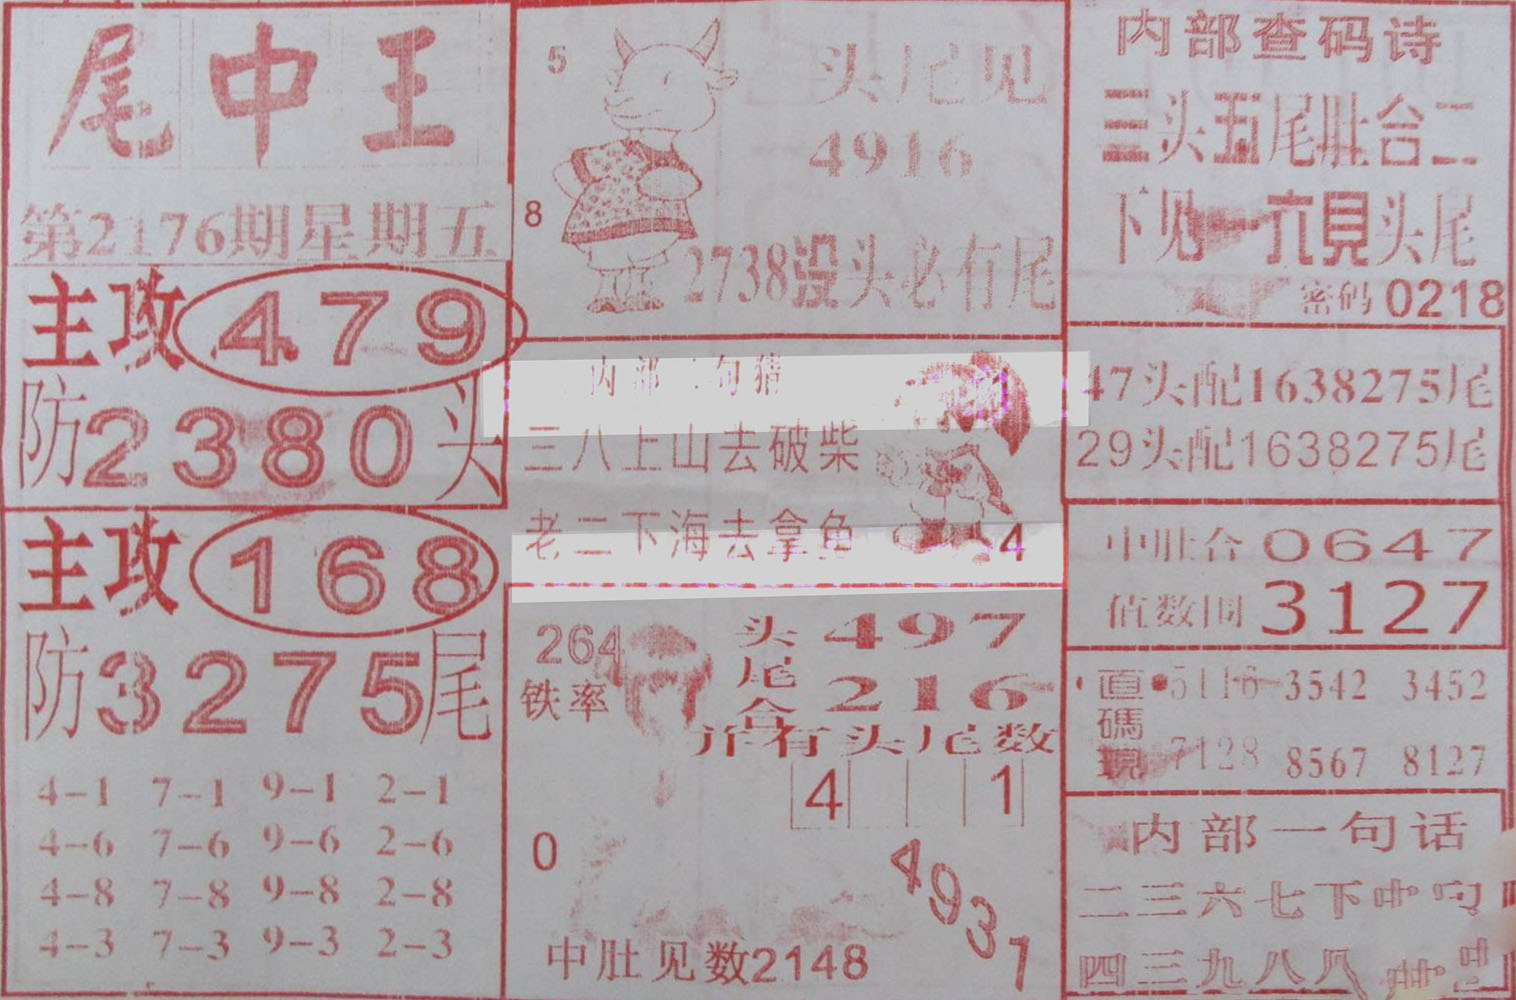 尾中王
第2176期星期五
主攻479
防2380头
主攻168
防3275尾
4-1 7-1 9-1 2-1
4-6 7-6 9-6 2-6
4-8 7-8 9-8 2-8
4-3 7-3 9-3 2-3
5
8
头尾见
4916
2738没头必有尾
内部二句猜
三八上山去破柴
老二下海去拿鱼
4
264
铁率
头尾合
497
216
并有头尾数
4 1
0
4931
中肚见数2148
内部查码诗
三头五尾肚合二
下见一六見头尾
密码0218
47头配1638275尾
29头配1638275尾
中肚合0647
值数围3127
直碼現
5116 3542 3452
7128 8567 8127
内部一句话
二三六七下中
四三九八八